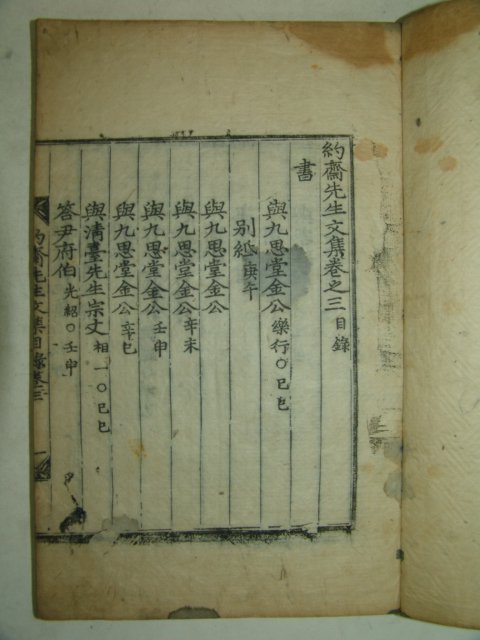 約齋先生文集卷之三目錄
書
與九思堂金公樂行○己巳
別紙庚午
與九思堂金公
與九思堂金公辛未
與九思堂金公壬申
與九思堂金公辛巳
與淸臺先生宗丈相一○己巳
答尹府伯光紹○壬申
約齋先生文集目錄卷三